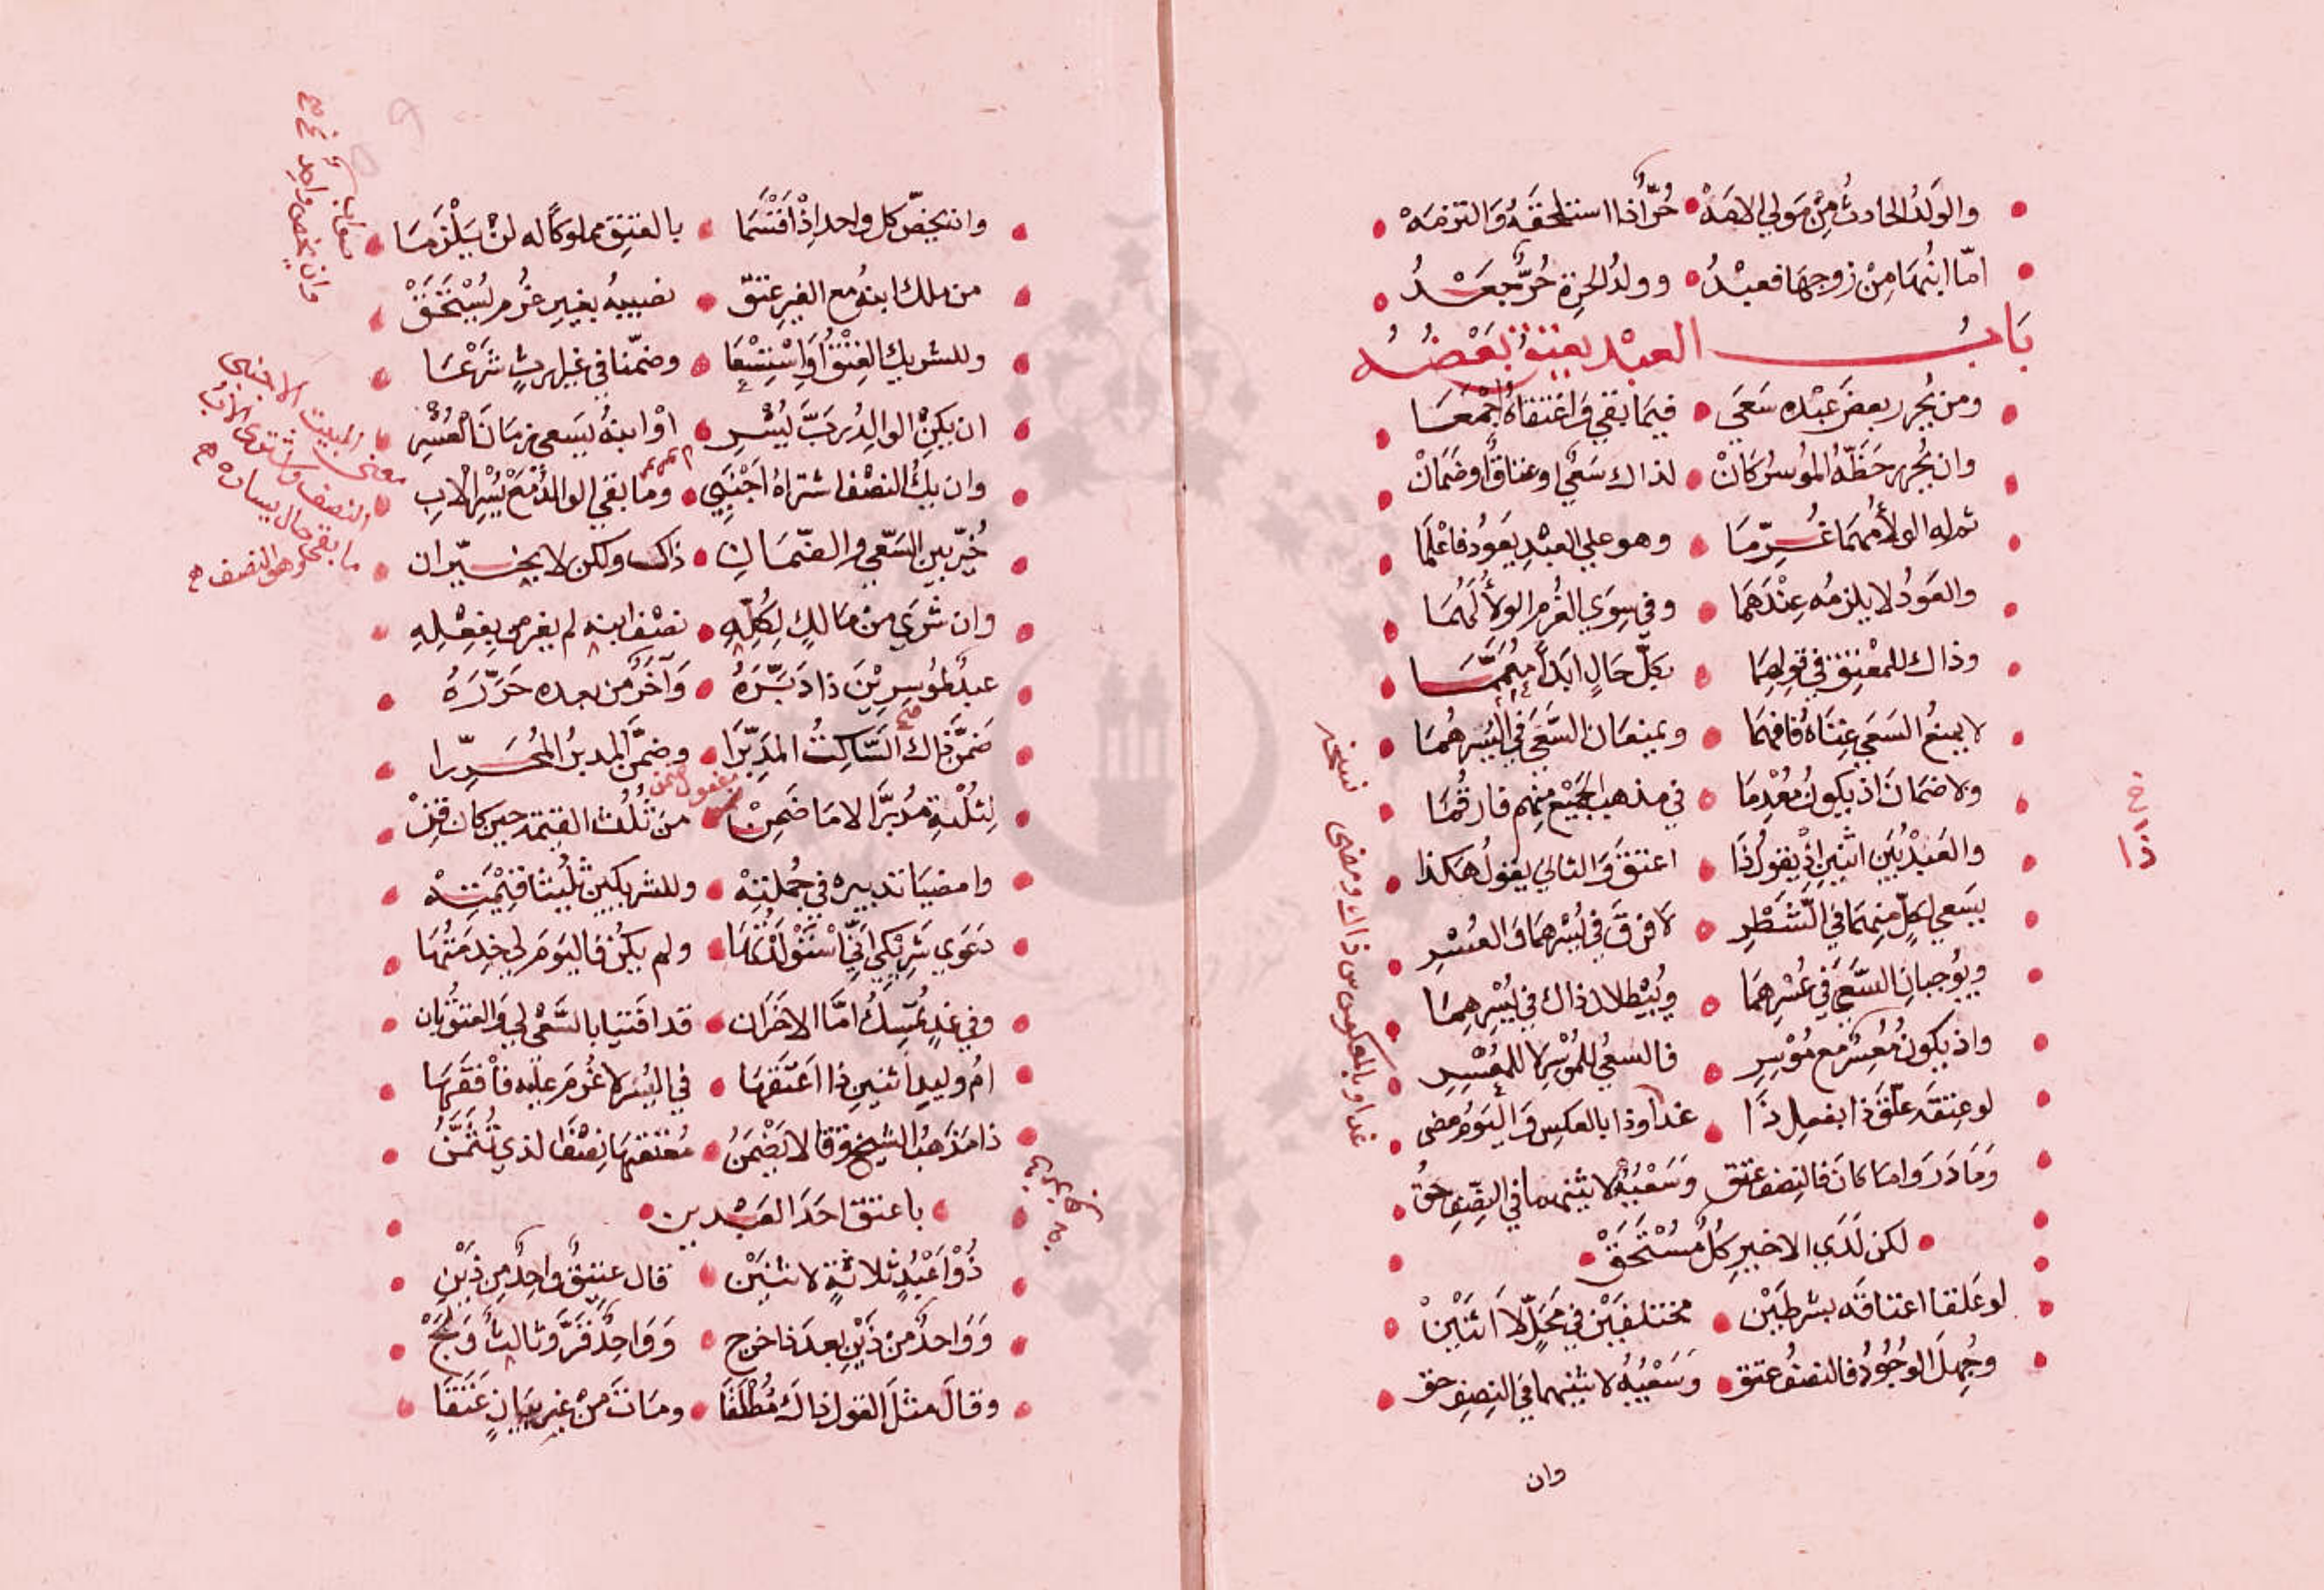 والولد الحادث من مولي الامه • حر اذا استلحقه والتزمه
اما ابنها من زوجها فعبد • وولد الحرة حر بعد
باب العبد يعتق بعضه
ومن يحرر بعض عبده سعي • فيما بقي واعتقاه اجمعا
وان يحرر حظه الموسر كان • لذاك سعي او عتاق او ضمان
ثم له الولا مهما غرما • وهو علي العبد يعود فاعلما
والعود لا يلزمه عندهما • وفي سوي الغرم الولا لهما
وذاك للمعتق في قولهما • بكل حال ابدا
لا يمنع السعي غناه فافهما • ويمنعان السعي في اليسر هما
ولا ضمان اذ يكون معدما • في مذهب الجميع منهم فارقما
والعبد بين اثنين اذ يقول ذا • اعتق والثاني يقول هكذا
يسعي لكل منهما في الشطر • لا فرق في يسرهما والعسر
ويوجبان السعي في عسرهما • ويبطلان ذاك في يسرهما
واذ يكون معسر مع موسر • فالسعي للموسر لا للمعسر
لو عتقه علق ذا بفعل ذا • غدا وذا بالعكس واليوم مضي
وما دروا ما كان فالنصف عتق • وسعيه لاثنيهما في النصف حق
• لكن لدي الاخير كل مستحق •
لو علقا اعتاقه بشرطين • مختلفين في محل لا اثنين
وجهل الوجود فالنصف عتق • وسعيه لاثنيهما في النصف حق
وان
نسخه
غدا وبالعكوس ذاك ومضي
ذا
وان يخص كل واحد اذ اقتسما • بالعتق مملوكا له لن يلزما
من ملك ابنه مع الغير عتق • نصيبه بغير غرم يستحق
وللشريك العتق او استسعا • وضمنا في غير ارث شرعا
ان يكن الوالد رب يسر • او ابنه يسعي زمان العسر
وان يك النصف اشتراه اجنبي • وما بقي الوالد مع يسر الاب
خير بين السعي والضمان • ذاك ولكن لا يخيران
وان شري من مالك لكله • نصف ابنه لم يغرمن بفعله
عبد لموسرين ذا دبره • وآخر من بعده حرره
ضمن ذاك الساكت المدبرا • وضمن المدبر المحررا
لثلثه مدبرا لا ما ضمن • من ثلث القيمة حين كان قن
وامضيا تدبيره في جملته • وللشريكين ثليثا قيمته
دعوي شريكي انني استولدتها • ولم يكن فاليوم لي خدمتها
وفي غد تمسك اما الاخران • قد افتيا بالسعي لي والعتق بان
ام وليد اثنين ذا اعتقها • في اليسر لا غرم عليه فافقها
ذا مذهب الشيخ وقالا يضمن • معتقها نصفا لذي تثمن
• باعتق احد العبدين •
ذو اعبد ثلاثة لاثنين • قال عتيق واحد من ذين
وواحد من ذين بعد ذا خرج • وواحد قر وثالث ولج
وقال مثل القول ذاك مطلقا • ومات من غير بيان عتقا
صوابه
وان يخص واحد
معني البيت الاجنبي
النصف واشتري الاب
ما بقي حال يساره
وهو النصف